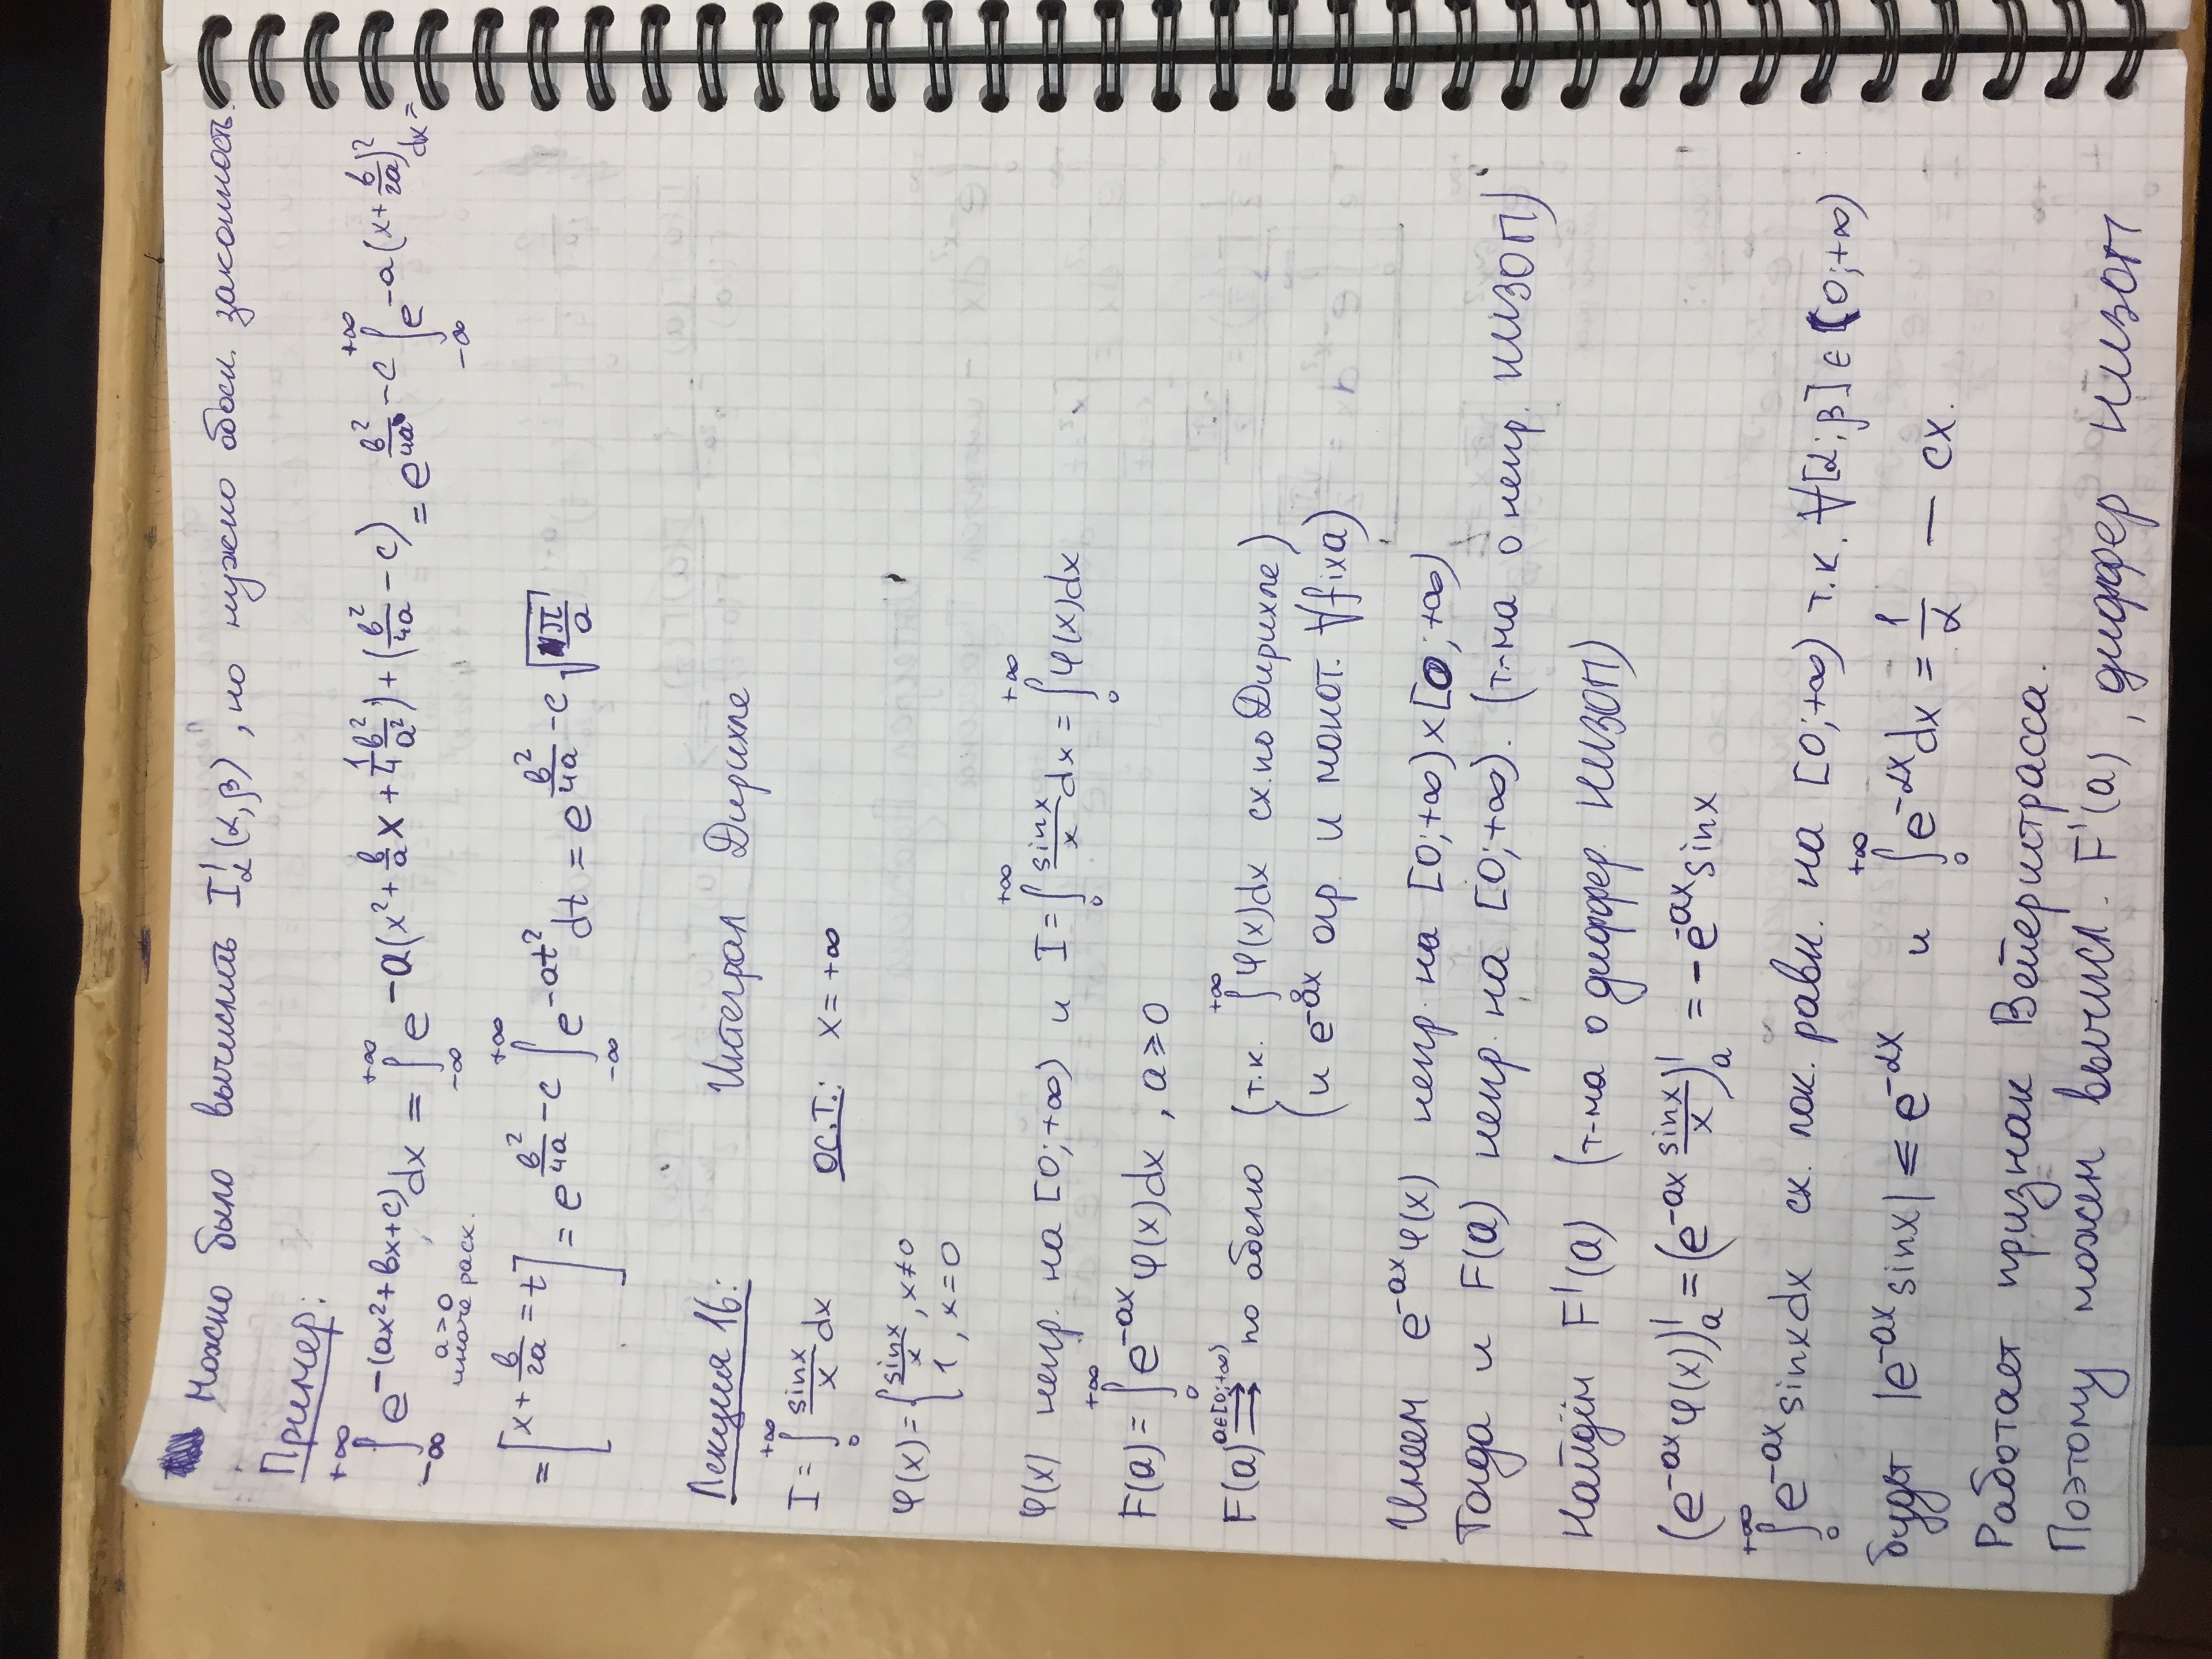 Можно было вычислить I'_α(α,β), но нужно обосн. законность.
Пример:
∫_{-∞}^{+∞} e^{-(ax²+bx+c)} dx = ∫_{-∞}^{+∞} e^{-a(x²+\frac{b}{a}x+\frac{1}{4}\frac{b²}{a²})+(\frac{b²}{4a}-c)} = e^{\frac{b²}{4a}-c} ∫_{-∞}^{+∞} e^{-a(x+\frac{b}{2a})²} dx =
a>0
иначе расх.
= [x+\frac{b}{2a}=t] = e^{\frac{b²}{4a}-c} ∫_{-∞}^{+∞} e^{-at²} dt = e^{\frac{b²}{4a}-c} \sqrt{\frac{π}{a}}
Лекция 16: Интеграл Дирихле
I = ∫_0^{+∞} \frac{sinx}{x} dx ос.т.: x=+∞
φ(x) = { \frac{sinx}{x}, x≠0
1, x=0
φ(x) непр. на [0;+∞) и I = ∫_0^{+∞} \frac{sinx}{x} dx = ∫_0^{+∞} φ(x)dx
F(a) = ∫_0^{+∞} e^{-ax} φ(x)dx, a≥0
F(a) ⇉^{a∈[0;+∞)} по абелю (т.к. ∫_0^{+∞} φ(x)dx сх. по Дирихле)
(и e^{-ax} огр и монот. ∀fixa)
Имеем e^{-ax}φ(x) непр на [0;+∞)×[0;+∞)
Тогда и F(a) непр. на [0;+∞). (т-ма о непр. НИЗОП)
Найдём F'(a) (т-ма о диффер НИЗОП)
(e^{-ax}φ(x))'_a = (e^{-ax} \frac{sinx}{x})'_a = -e^{-ax}sinx
∫_0^{+∞} e^{-ax}sinxdx сх. лок. равн. на [0;+∞) т.к. ∀[α;β]∈(0;+∞)
будет |e^{-ax}sinx| ≤ e^{-αx} и ∫_0^{+∞} e^{-αx}dx = \frac{1}{α} — сх.
Работает признак Вейерштрасса.
Поэтому можем вычисл. F'(a), диффер НИЗОП